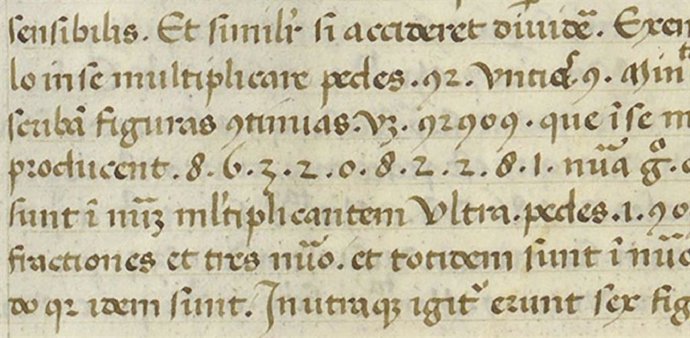 sensibilis. Et similr̃ si accideret diuidẽ. Exen
lo in se multiplicare pedes .92. vntias 9. Min
scribã figuras 9tinuas. vz. 92909. que ĩ se m
producent .8.6.3.2.0.8.2.2.8.1. nũa g̃.
sunt ĩ nũꝫ ml̃tiplicantem Vltra. pedes .1.90
fractiones et tres nũo. et totidem sunt ĩ nũc
do qꝛ idem sunt. In utraqꝫ igit᷑ erunt sex fig